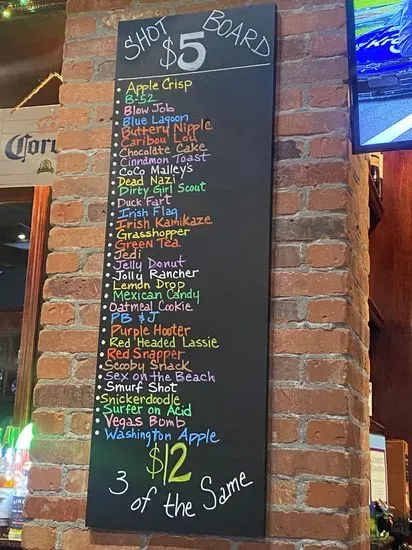 SHOT BOARD
$5
Apple Crisp
B-52
Blow Job
Blue Lagoon
Buttery Nipple
Caribou Lou
Chocolate Cake
Cinnamon Toast
CoCo Malley's
Dead Nazi
Dirty Girl Scout
Duck Fart
Irish Flag
Irish Kamikaze
Grasshopper
Green Tea
Jedi
Jelly Donut
Jolly Rancher
Lemon Drop
Mexican Candy
Oatmeal Cookie
PB & J
Purple Hooter
Red Headed Lassie
Red Snapper
Scooby Snack
Sex on the Beach
Smurf Shot
Snickerdoodle
Surfer on Acid
Vegas Bomb
Washington Apple
$12
3 of the Same
Coro